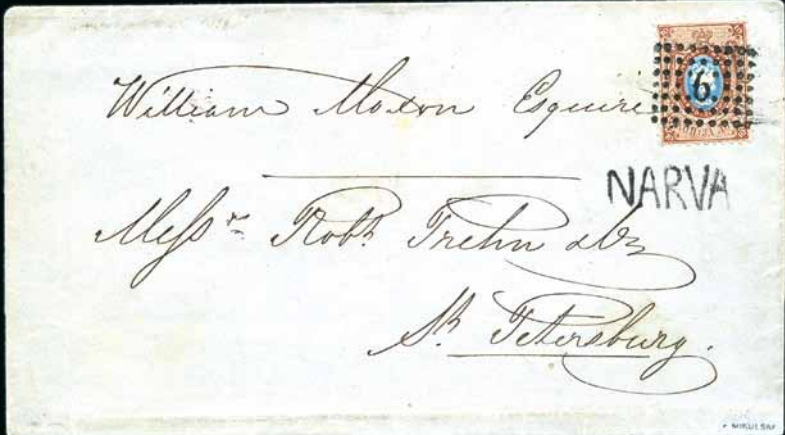 William Moxon Esquire
6
NARVA
Messrs Robt Trehn & Co
St Petersburg.
MIKULSKI